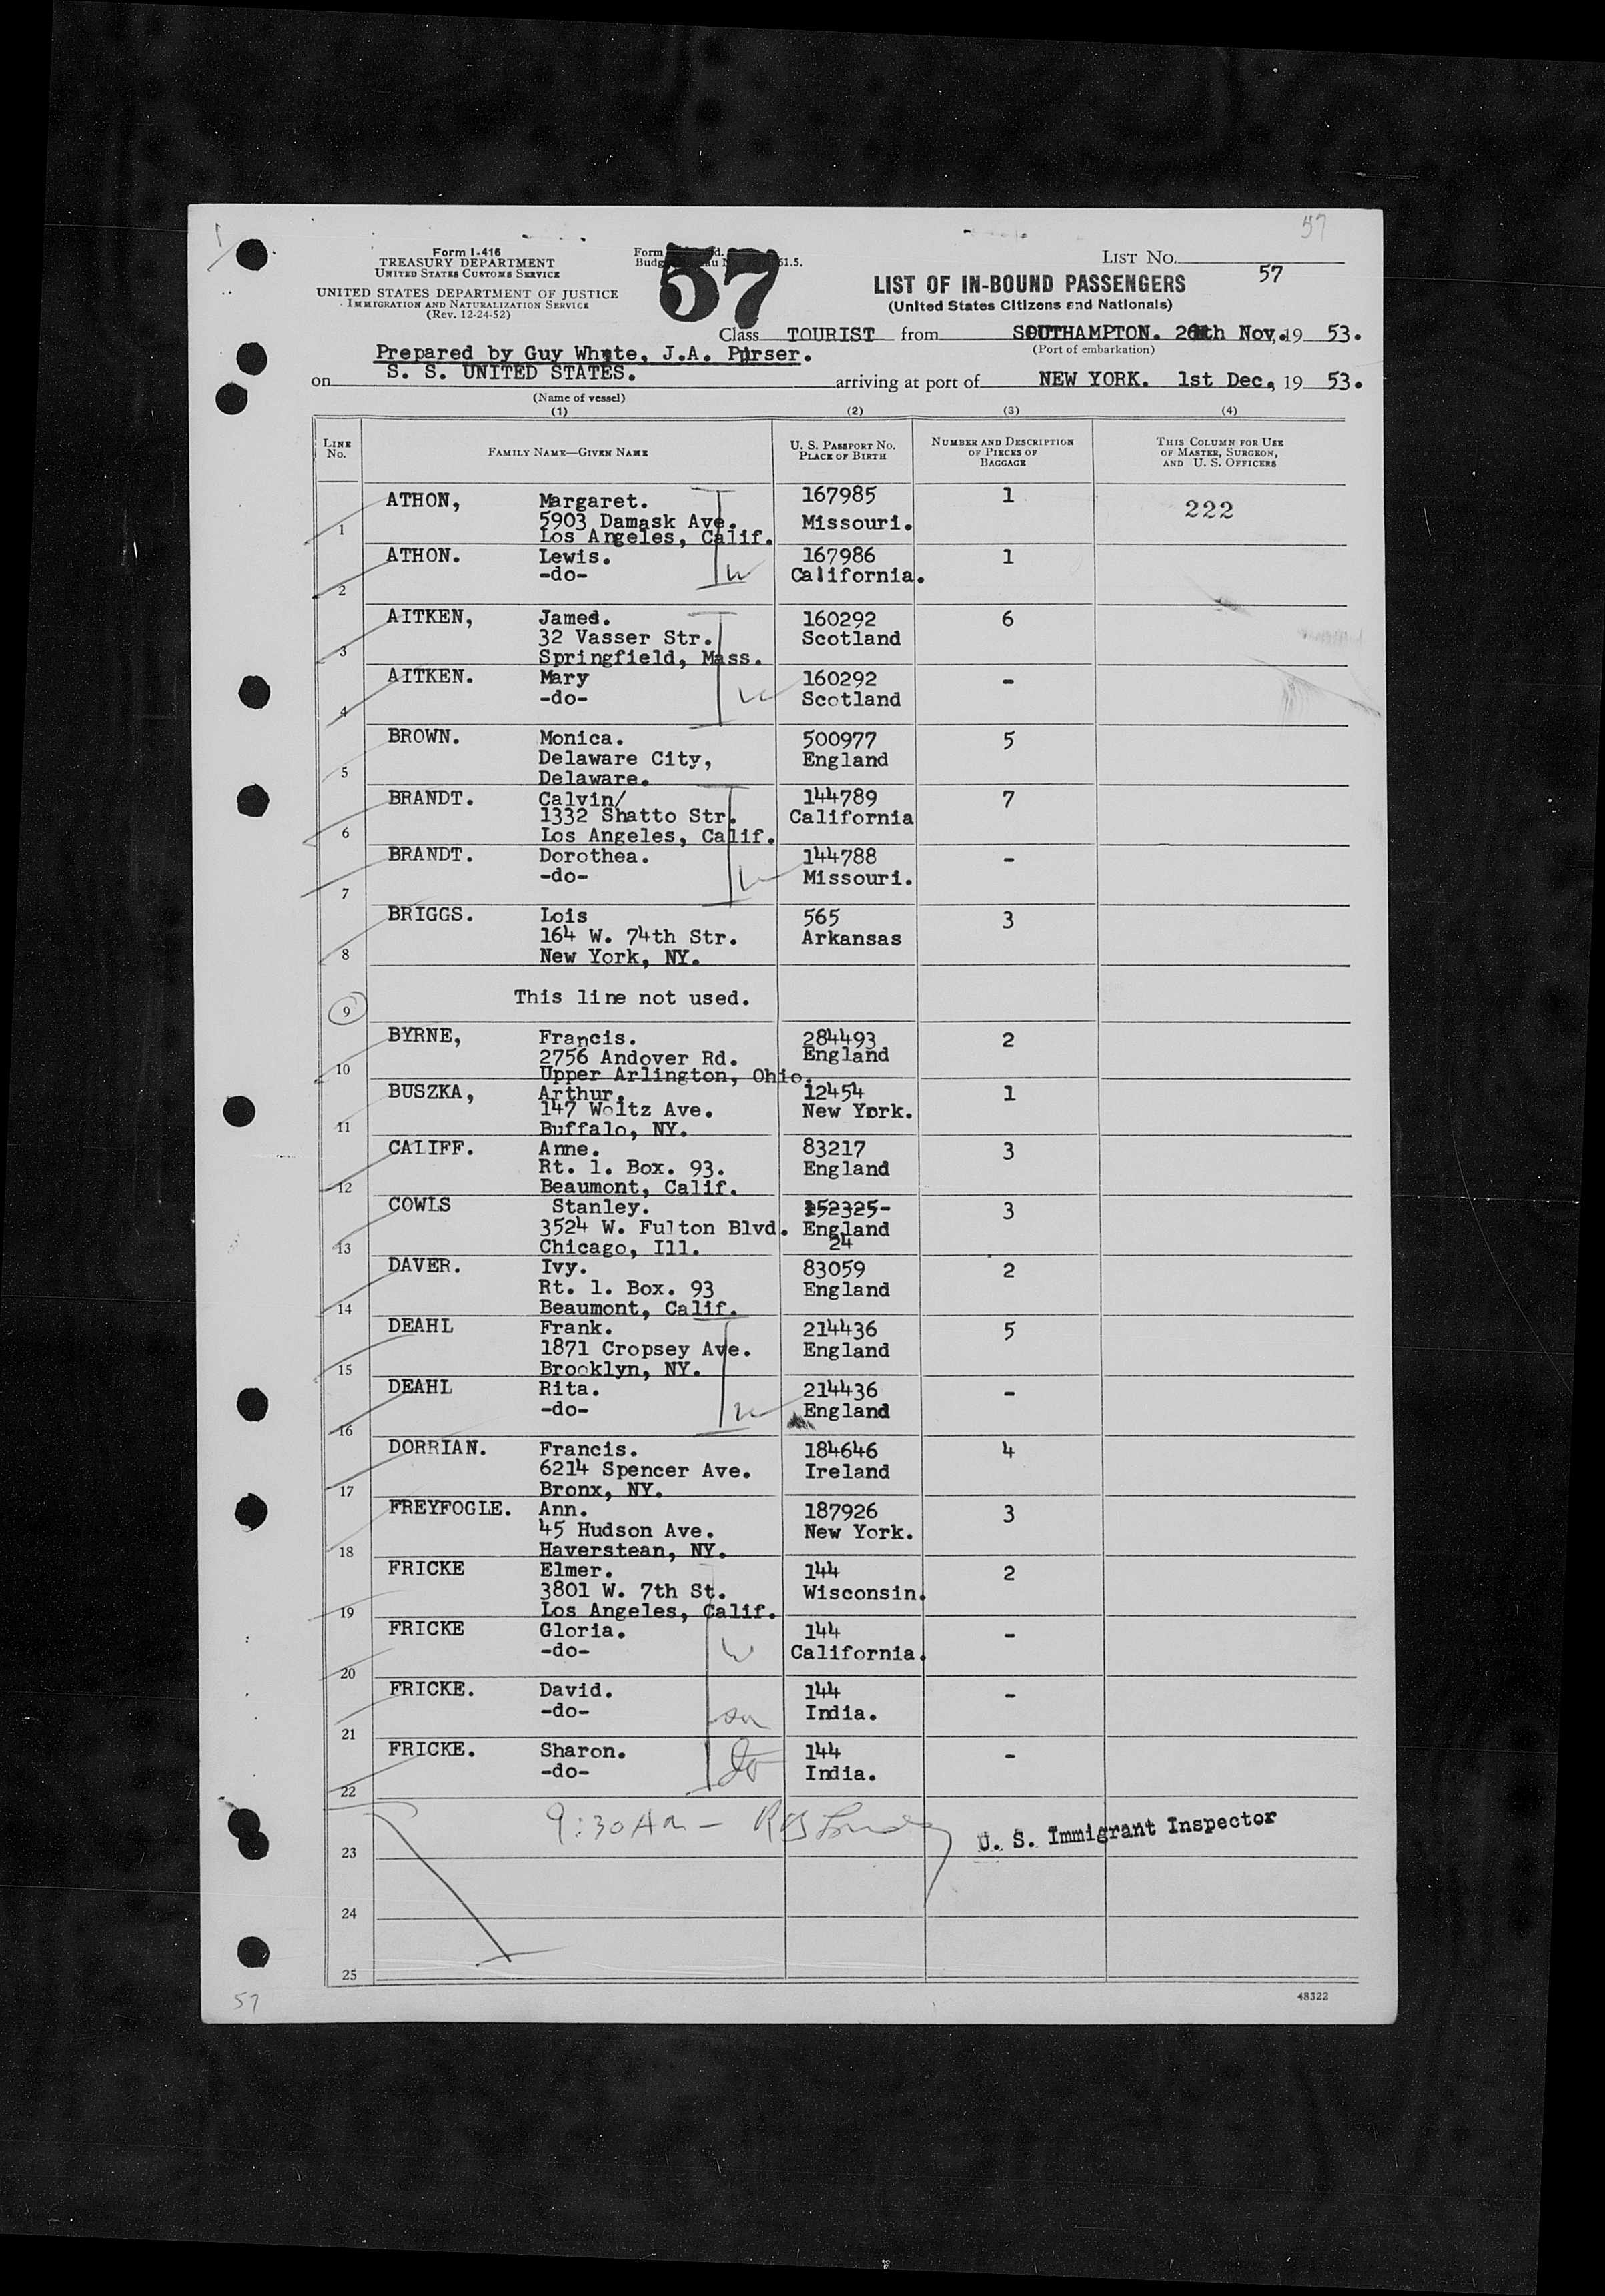 57
Form I-416
TREASURY DEPARTMENT
UNITED STATES CUSTOMS SERVICE
UNITED STATES DEPARTMENT OF JUSTICE
IMMIGRATION AND NATURALIZATION SERVICE
(Rev. 12-24-52)
Form
57
LIST No.
57
LIST OF IN-BOUND PASSENGERS
(United States Citizens and Nationals)
Class TOURIST from SOUTHAMPTON. Nov, 19 53.
(Port of embarkation)
Prepared by Guy Whyte, J.A. Purser.
on S. S. UNITED STATES. arriving at port of NEW YORK. 1st Dec, 19 53.
(Name of vessel)
(1) (2) (3) (4)
LINE No. FAMILY NAME—GIVEN NAME U. S. PASSPORT NO. PLACE OF BIRTH NUMBER AND DESCRIPTION OF PIECES OF BAGGAGE THIS COLUMN FOR USE OF MASTER, SURGEON, AND U. S. OFFICERS
1 ATHON, Margaret. 167985 1 222
5903 Damask Ave. Missouri.
Los Angeles, Calif.
2 ATHON. Lewis. 167986 1
-do- California.
W
3 AITKEN, James. 160292 6
32 Vasser Str. Scotland
Springfield, Mass.
4 AITKEN. Mary 160292 -
-do- Scotland
W
5 BROWN. Monica. 500977 5
Delaware City, England
Delaware.
6 BRANDT. Calvin/ 144789 7
1332 Shatto Str. California
Los Angeles, Calif.
7 BRANDT. Dorothea. 144788 -
-do- Missouri.
W
8 BRIGGS. Lois 565 3
164 W. 74th Str. Arkansas
New York, NY.
9 This line not used.
10 BYRNE, Francis. 284493 2
2756 Andover Rd. England
Upper Arlington, Ohio.
11 BUSZKA, Arthur. 12454 1
147 Woltz Ave. New York.
Buffalo, NY.
12 CALIFF. Anne. 83217 3
Rt. 1. Box. 93. England
Beaumont, Calif.
13 COWLS Stanley. 152325- 3
3524 W. Fulton Blvd. England
Chicago, Ill. 24
14 DAVER. Ivy. 83059 2
Rt. 1. Box. 93 England
Beaumont, Calif.
15 DEAHL Frank. 214436 5
1871 Cropsey Ave. England
Brooklyn, NY.
16 DEAHL Rita. 214436 -
-do- England
W
17 DORRIAN. Francis. 184646 4
6214 Spencer Ave. Ireland
Bronx, NY.
18 FREYFOGLE. Ann. 187926 3
45 Hudson Ave. New York.
Haverstean, NY.
19 FRICKE Elmer. 144 2
3801 W. 7th St. Wisconsin.
Los Angeles, Calif.
20 FRICKE Gloria. 144 -
-do- California.
W
21 FRICKE. David. 144 -
-do- India.
22 FRICKE. Sharon. 144 -
-do- India.
9:30 AM -
U. S. Immigrant Inspector
23
24
25
57
48322